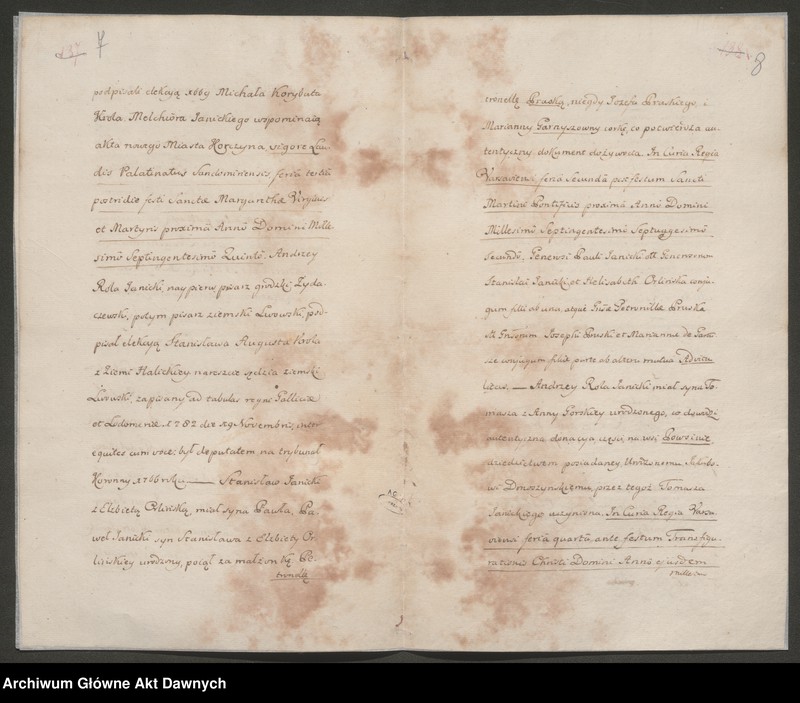 7
podpisali elekcją 1669 Michała Korybuta
Krola Melchiora Janickiego wspominaią
akta nowego Miasta Korczyna, vigore Lau-
dis Palatinatus Sandomiriensis feria tertia
postridie festi Sanctæ Margarithæ Virginis
et Martyris proxima Anno Domini Mille-
simo Septingentesimo Quinto. Andrzey
Rola Janicki, naypierw pisarz grodzki Zyda-
czewski, potym pisarz ziemski Lwowski, pod-
pisał elekcją Stanisława Augusta Krola
z Ziemi Halickiey nareszcie sędzia ziemski
Lwowski, zapisany ad tabulas regni Galliciæ
et Lodomeriæ 1782 die 29 Novembris, inter
equites cum voce; był deputatem na trybunał
Koronny 1766 roku. — Stanisław Janicki
z Elżbietą Orlińską, miał syna Pawła, Pa-
weł Janicki syn Stanisława z Elżbiety Or-
lińskiey urodzony, poiął za małżonkę Pe-
tronellę
8
tronellę Pruską, niegdy Jozefa Pruskiego, i
Marianny Garnyszowny corkę, co potwierdza au-
tentyczny dokument dożywocia. In Curia Regia
Varsaviensi feria Secunda post festum Sancti
Martini Pontificis proxima Anno Domini
Millesimo Septingentesimo Septuagesimo
Secundo, Generosi Pauli Janicki olim Generosorum
Stanislai Janicki et Helisabeth Orlińska conju-
gum filii ab una, atque Petronillæ Pruska
olim Josephi Pruski et Mariannæ de
conjugum filiæ parte ab altera mutua Advita-
litas. — Andrzey Rola Janicki miał syna To-
masza z Anny Gorskiey urodzonego, co dowodzi
autentyczna donacya części, na wsi
dziedzictwem posiadaney, Urodzonemu Jakubo-
wi przez tegoż Tomasza
Janickiego uczyniona. In Curia Regia Varsa-
viensi feria quarta, ante festum Transfigu-
rationis Christi Domini Anno ejusdem
Mille-
Archiwum Główne Akt Dawnych